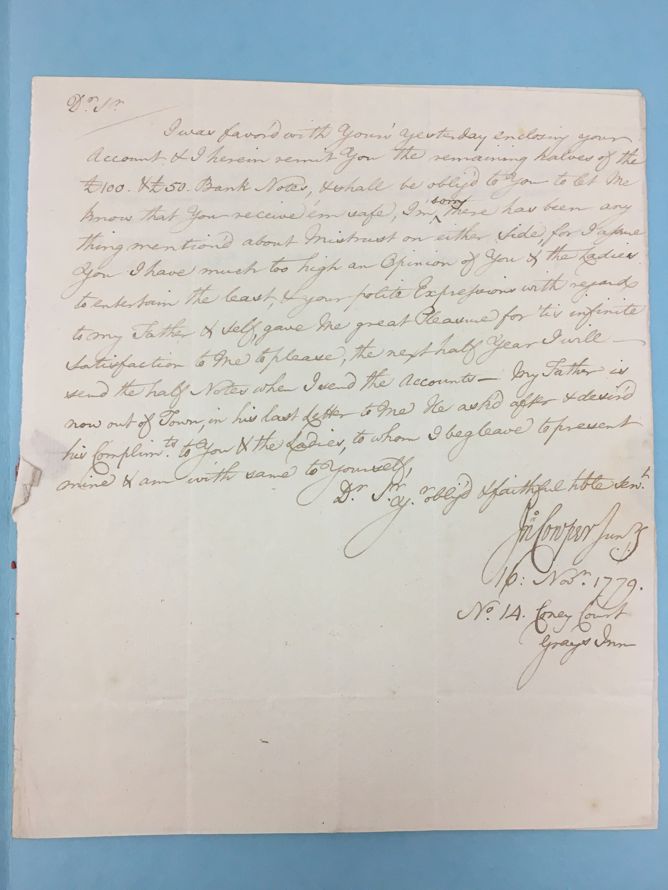 Dr. Sr.
I was favor'd with Yours Yesterday enclosing your
Account & I herein remit You the remaining halves of the
£100. & £50. Bank Notes, & shall be oblig'd to You to let Me
know that You receive 'em safe, I'm sorry there has been any
thing mention'd about Mistrust on either Side, for I assure
You I have much too high an Opinion of You & the Ladies
to entertain the least, & your polite Expressions with regard
to my Father & self, gave Me great Pleasure for 'tis infinite
satisfaction to Me to please, the next half Year I will
send the half Notes when I send the Accounts — My Father is
now out of Town, in his last Letter to Me He ask'd after & desir'd
his Complimts. to You & the Ladies, to whom I beg leave to present
mine & am with same to Yourself,
Dr. Sr. Yr. oblig'd & faithful h'ble Servt.
Jn Cowper Junr.
16: Novr. 1779.
No. 14. Coney Court
Grays Inn